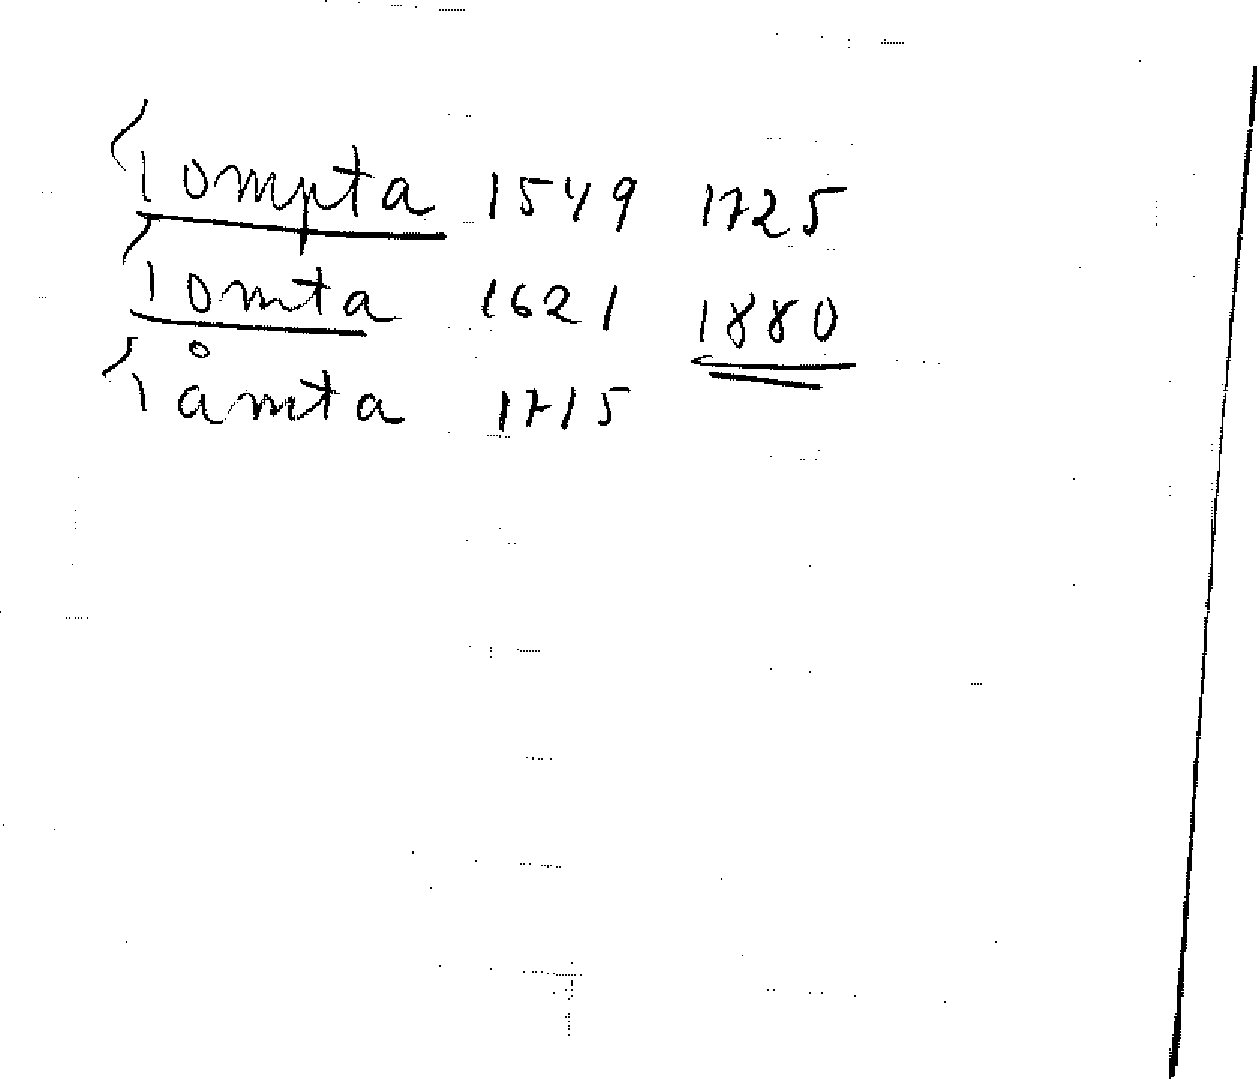 Tompta 1549 1725
Tomta 1621 1880
Tåmta 1715